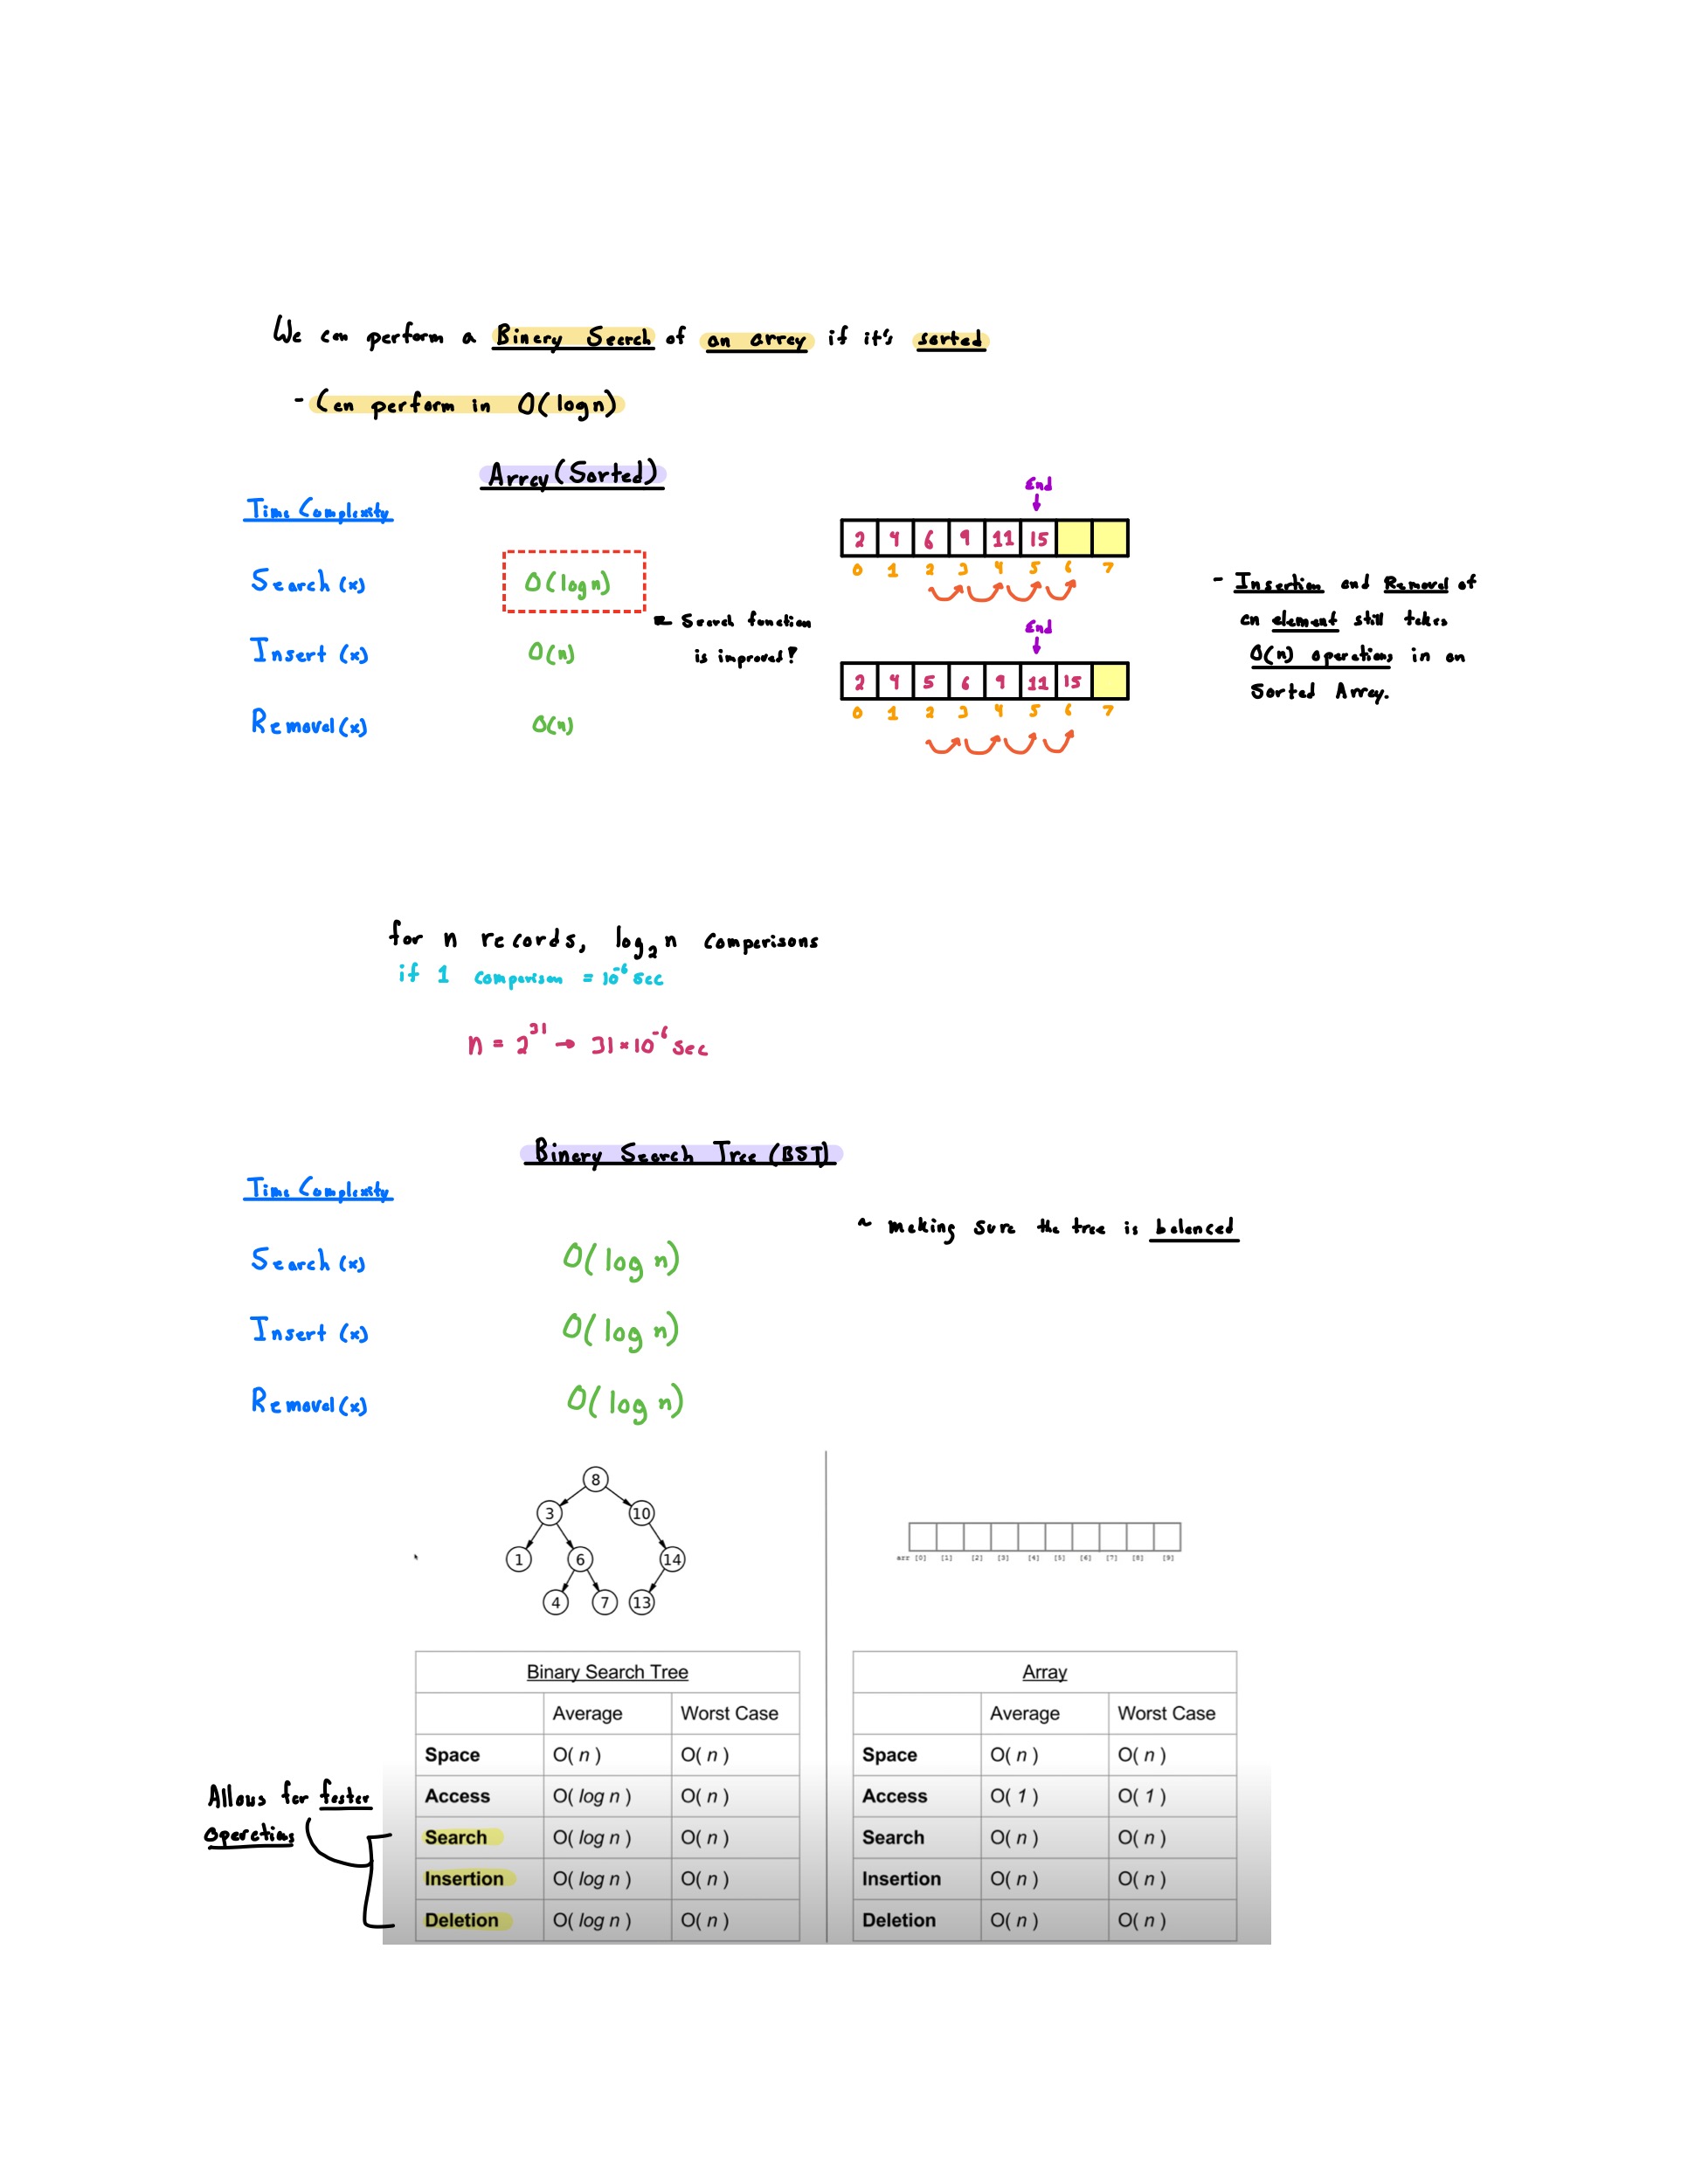 We can perform a Binary Search of an array if it's sorted
- Can perform in O(log n)
Array (Sorted)
Time Complexity
Search (x) O(log n)
Insert (x) O(n)
Removal (x) O(n)
Search function
is improved!
End
2 4 6 9 11 15
0 1 2 3 4 5 6 7
End
2 4 5 6 9 11 15
0 1 2 3 4 5 6 7
- Insertion and Removal of
an element still takes
O(n) operations in an
Sorted Array.
for n records, log₂n comparisons
if 1 comparison = 10⁻⁶ sec
n = 2³¹ → 31×10⁻⁶ sec
Binary Search Tree (BST)
Time Complexity
~ making sure the tree is balanced
Search (x) O(log n)
Insert (x) O(log n)
Removal (x) O(log n)
8
3 10
1 6 14
4 7 13
arr [0] [1] [2] [3] [4] [5] [6] [7] [8] [9]
Binary Search Tree
Average Worst Case
Space O( n ) O( n )
Access O( log n ) O( n )
Search O( log n ) O( n )
Insertion O( log n ) O( n )
Deletion O( log n ) O( n )
Array
Average Worst Case
Space O( n ) O( n )
Access O( 1 ) O( 1 )
Search O( n ) O( n )
Insertion O( n ) O( n )
Deletion O( n ) O( n )
Allows for faster
operations